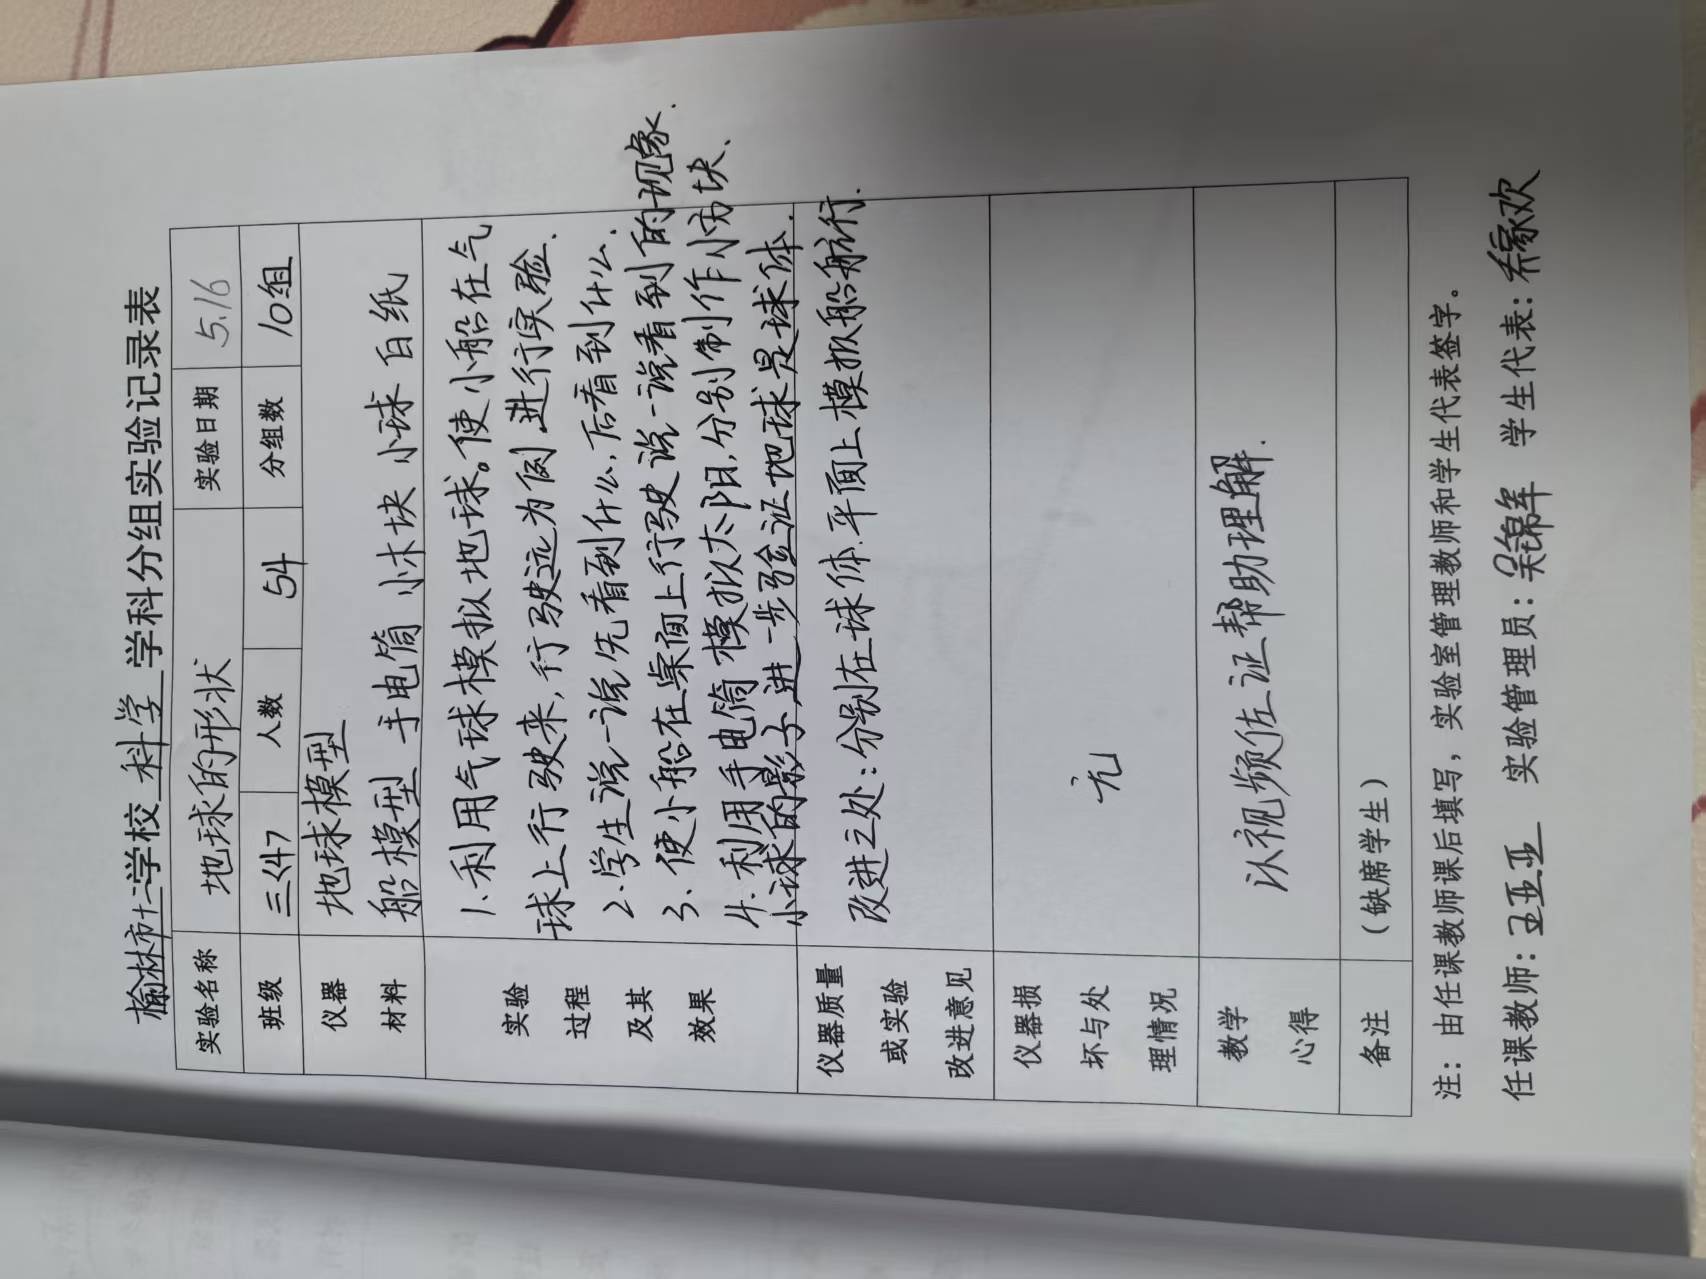 榆林市十二学校 科学 学科分组实验记录表
实验名称 地球的形状 实验日期 5.16
班级 三<4> 人数 54 分组数 10组
仪器材料 地球模型
船模型 手电筒 小木块 小球 白纸
实验过程及其效果
1.利用气球模拟地球。使小船在气
球上行驶来,行驶远为例进行实验.
2.学生说一说先看到什么,后看到什么.
3.使小船在桌面上行驶说一说看到的现象.
4.利用手电筒模拟太阳,分别制作小方块、
小球的影子进一步验证地球是球体.
仪器质量或实验改进意见
改进之处:分别在球体.平面上模拟船航行.
仪器损坏与处理情况 无
教学心得 以视频佐证帮助理解.
备注 (缺席学生)
注:由任课教师课后填写,实验室管理教师和学生代表签字。
任课教师: 实验管理员: 学生代表: